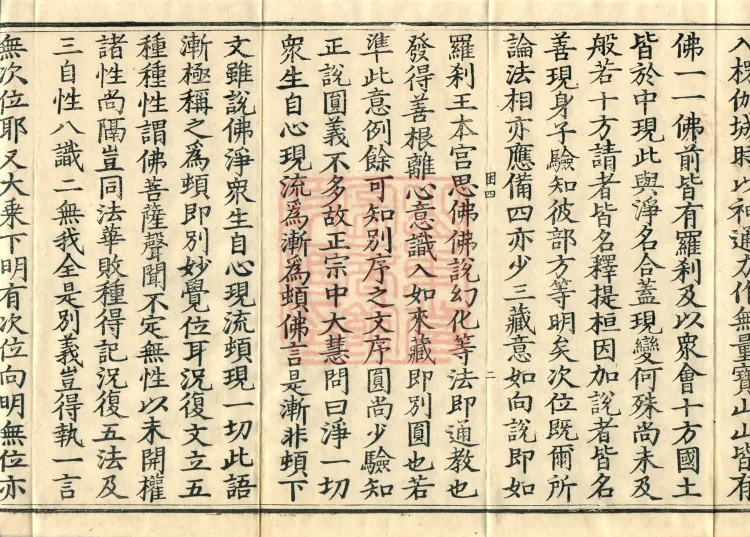 入楞伽城時以神通力作無量寶山山皆有
佛一一佛前皆有羅刹及以眾會十方國土
皆於中現此與淨名合蓋現變何殊尚未及
般若十方請者皆名釋提桓因加說者皆名
善現身子驗知彼部方等明矣次位既爾所
論法相亦應備四亦少三藏意如向說即如
困四
二
羅刹王本宮思佛佛說幻化等法即通教也
發得善根離心意識入如來藏即別圓也若
準此意例餘可知別序之文序圓尚少驗知
正說圓義不多故正宗中大慧問曰淨一切
眾生自心現流為漸為頓佛言是漸非頓下
文雖說佛淨眾生自心現流頓現一切此語
漸極稱之為頓即別妙覺位耳況復文立五
種種性謂佛菩薩聲聞不定無性以未開權
諸性尚隔豈同法華敗種得記況復五法及
三自性八識二無我全是別義豈得執一言
無次位耶又大乘下明有次位向明無位亦